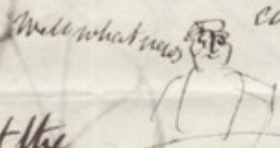 Well what news
co
t the